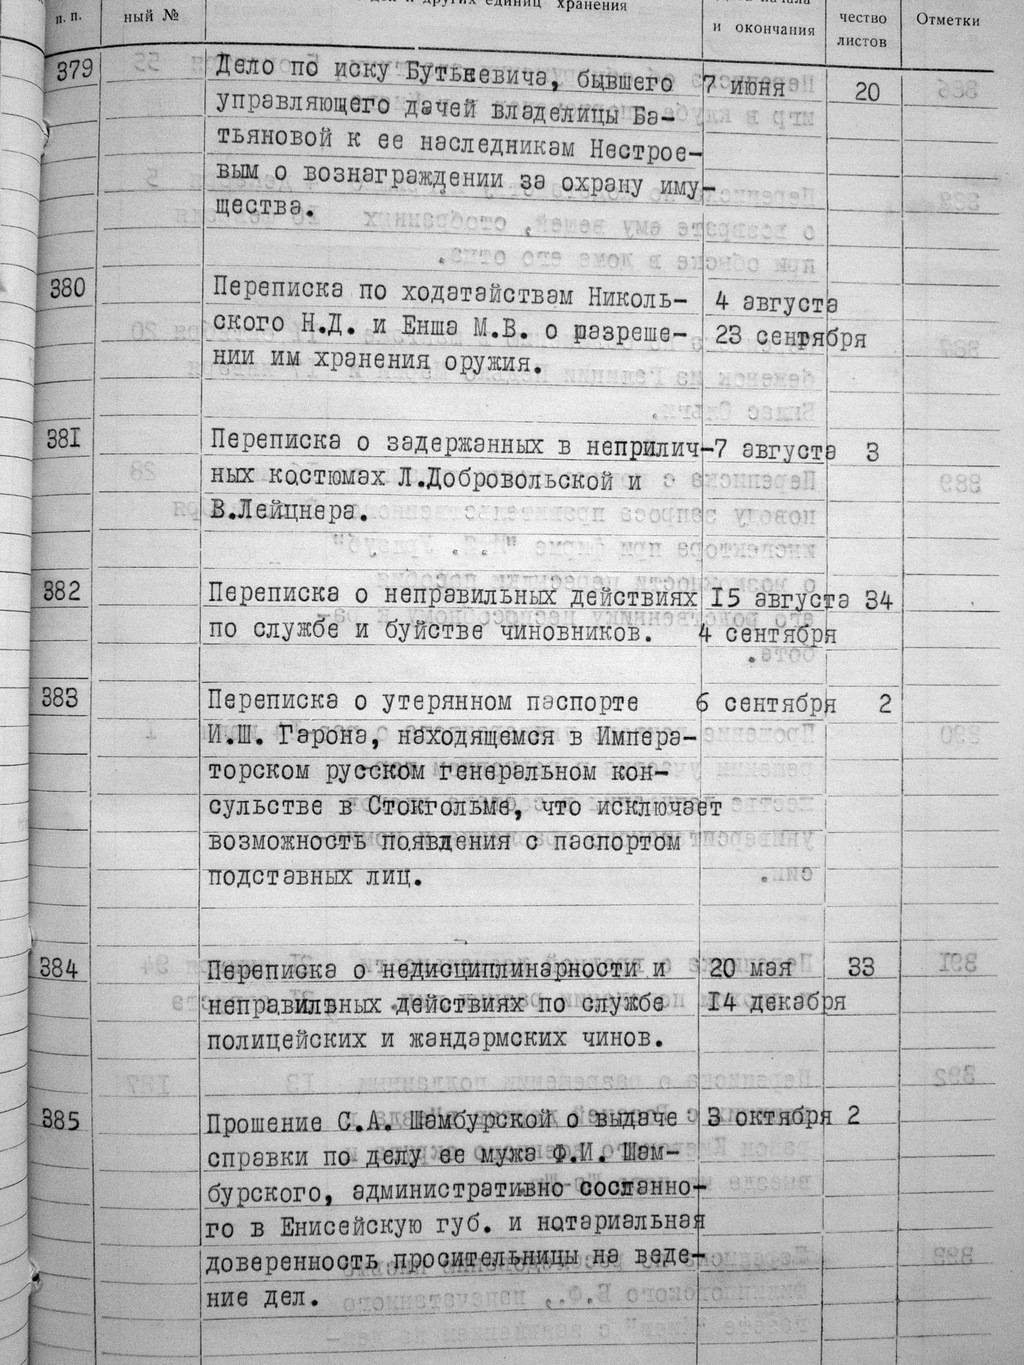 п. п. ный № дел и других единиц хранения и окончания чество листов Отметки
379 Дело по иску Бутькевича, бывшего 7 июня 20
управляющего дачей владелицы Ба-
тьяновой к ее наследникам Нестрое-
вым о вознаграждении за охрану иму-
щества.
380 Переписка по ходатайствам Николь- 4 августа
ского Н.Д. и Енша М.В. о разреше- 23 сентября
нии им хранения оружия.
381 Переписка о задержанных в неприлич- 7 августа 3
ных костюмах Л.Добровольской и
В.Лейцнера.
382 Переписка о неправильных действиях 15 августа 34
по службе и буйстве чиновников. 4 сентября
383 Переписка о утерянном паспорте 6 сентября 2
И.Ш. Гарона, находящемся в Импера-
торском русском генеральном кон-
сульстве в Стокгольме, что исключает
возможность появдения с паспортом
подставных лиц.
384 Переписка о недисциплинарности и 20 мая 33
неправильных действиях по службе 14 декабря
полицейских и жандармских чинов.
385 Прошение С.А. Шамбурской о выдаче 3 октября 2
справки по делу ее мужа Ф.И. Шам-
бурского, административно сосланно-
го в Енисейскую губ. и нотариальная
доверенность просительницы на веде-
ние дел.